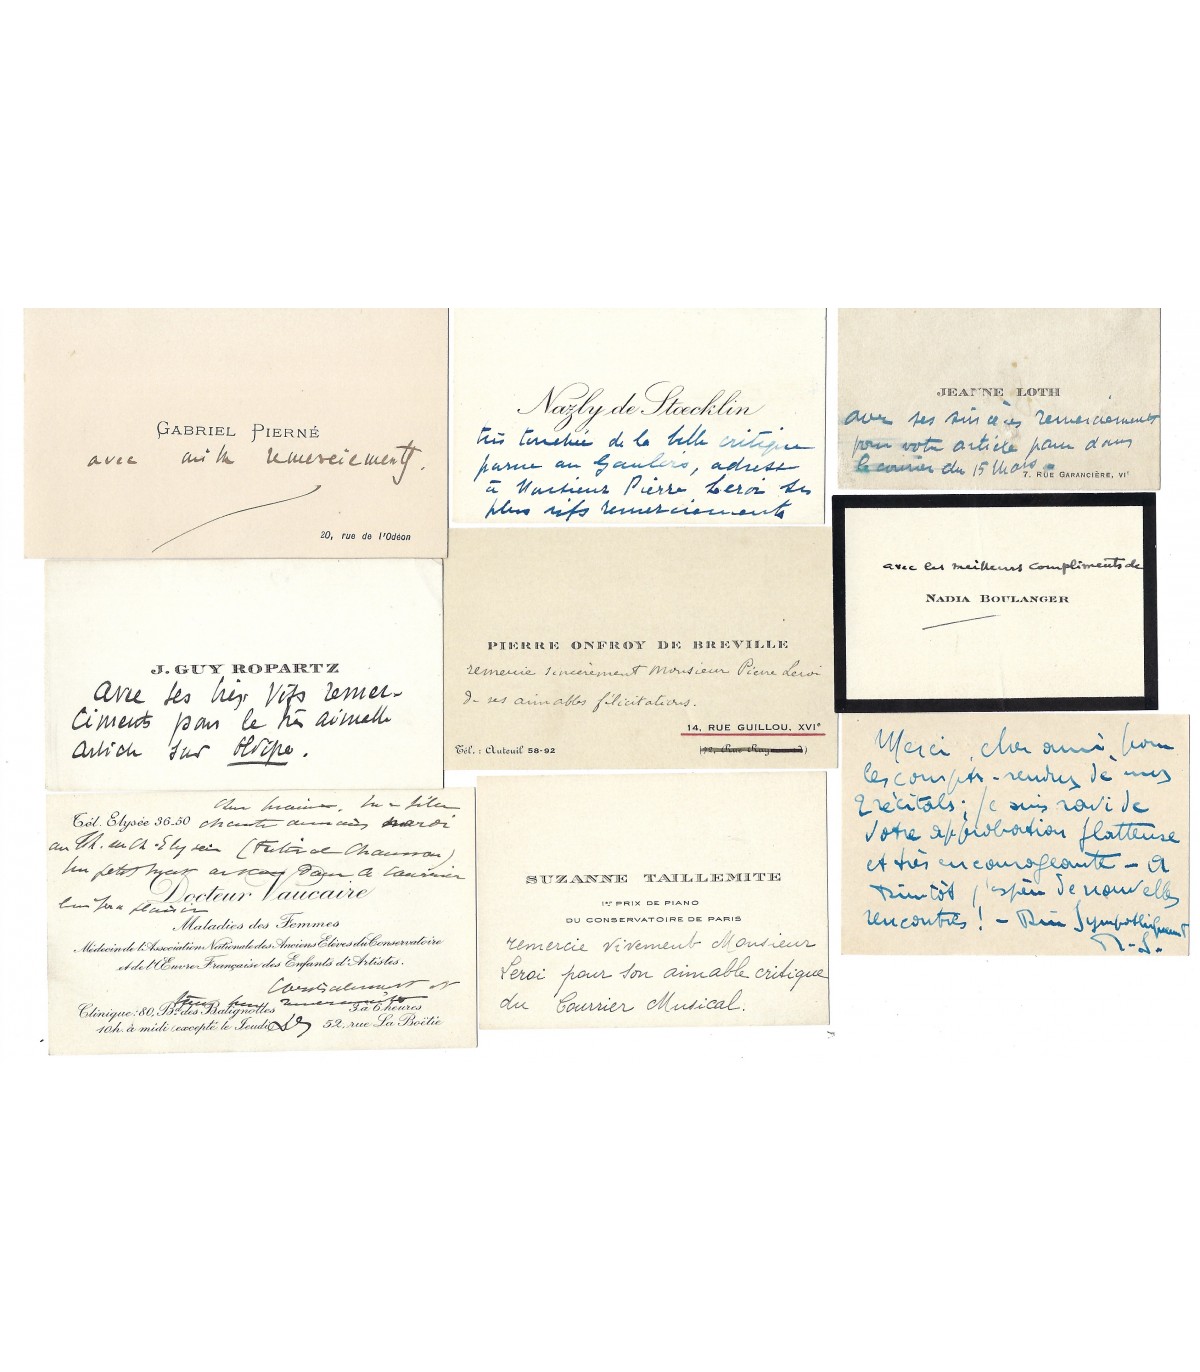 GABRIEL PIERNÉ
avec mille remerciements.
20, rue de l'Odéon
Nazly de Stœcklin
très touchée de la belle critique
parue au Gaulois, adresse
à Monsieur Pierre Leroi ses
plus vifs remerciements
JEANNE LOTH
avec ses sincères remerciements
pour votre article paru dans
le courrier du 15 Mars
7, RUE GARANCIÈRE, VIᵉ
J. GUY ROPARTZ
avec ses très vifs remer-
ciements pour le très aimable
article sur Œdipe.
PIERRE ONFROY DE BREVILLE
remercie sincèrement Monsieur Pierre Leroi
de ses aimables félicitations.
14, RUE GUILLOU, XVIᵉ
Tél. : Auteuil 58-92
avec les meilleurs compliments de
NADIA BOULANGER
Tél. Elysée 36-50
chante
au Th. en Ch. Elysées
Chausson)
Un petit
Docteur Vaucaire
plaisir
Maladies des Femmes
Médecin de l'Association Nationale des Anciens Elèves du Conservatoire
et de l'Œuvre Française des Enfants d'Artistes.
Cordialement et
Clinique: 80, Bᵈ des Batignolles
5 à 6 heures
10h. à midi (excepté le Jeudi)
52, rue La Boëtie
SUZANNE TAILLEMITE
1ᵉʳ PRIX DE PIANO
DU CONSERVATOIRE DE PARIS
remercie vivement Monsieur
Leroi pour son aimable critique
du Courrier Musical.
Merci, cher ami, pour
les compte-rendus de mes
2 récitals; je suis ravi de
votre approbation flatteuse
et très encourageante - A
bientôt j'espère de nouvelles
rencontres! - Bien sympathiquement